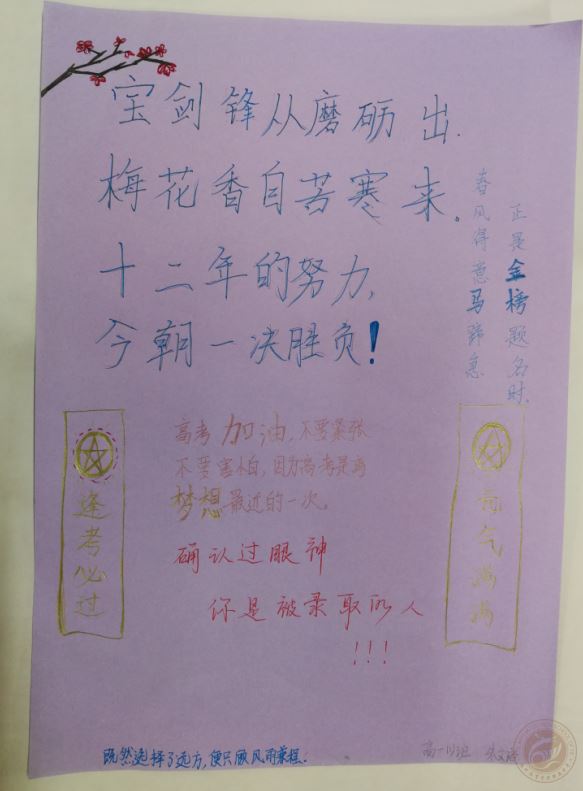 宝剑锋从磨砺出.
梅花香自苦寒来.
十二年的努力,
今朝一决胜负!
春风得意马蹄急
正是金榜题名时.
高考加油,不要紧张
不要害怕,因为高考是离
梦想最近的一次。
确认过眼神
你是被录取的人
!!!
逢考必过
元气满满
既然选择了远方,便只顾风雨兼程.
高一